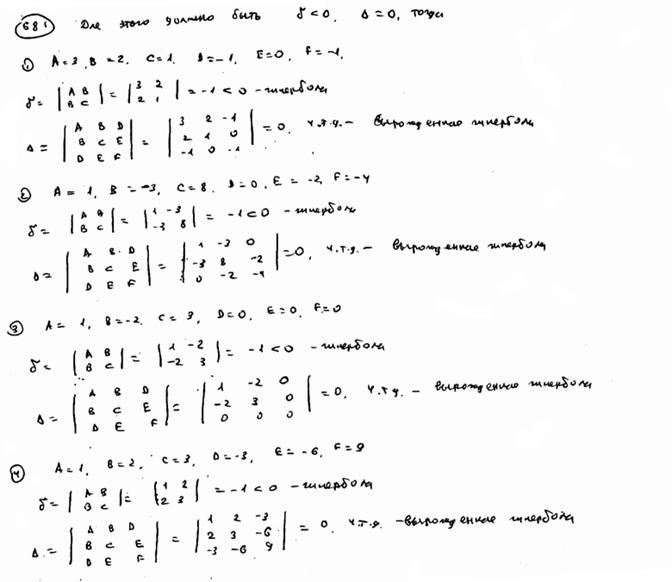 681 Для этого должно быть δ < 0, Δ = 0, тогда
1) A = 3, B = 2, C = 1, D = -1, E = 0, F = -1,
δ = |A B; B C| = |3 2; 2 1| = -1 < 0 - гипербола
Δ = |A B D; B C E; D E F| = |3 2 -1; 2 1 0; -1 0 -1| = 0, ч.т.д. - вырожденная гипербола
2) A = 1, B = -3, C = 8, D = 0, E = -2, F = -4
δ = |A B; B C| = |1 -3; -3 8| = -1 < 0 - гипербола
Δ = |A B D; B C E; D E F| = |1 -3 0; -3 8 -2; 0 -2 -4| = 0, ч.т.д. - вырожденная гипербола
3) A = 1, B = -2, C = 3, D = 0, E = 0, F = 0
δ = |A B; B C| = |1 -2; -2 3| = -1 < 0 - гипербола
Δ = |A B D; B C E; D E F| = |1 -2 0; -2 3 0; 0 0 0| = 0, ч.т.д. - вырожденная гипербола
4) A = 1, B = 2, C = 3, D = -3, E = -6, F = 9
δ = |A B; B C| = |1 2; 2 3| = -1 < 0 - гипербола
Δ = |A B D; B C E; D E F| = |1 2 -3; 2 3 -6; -3 -6 9| = 0, ч.т.д. - вырожденная гипербола